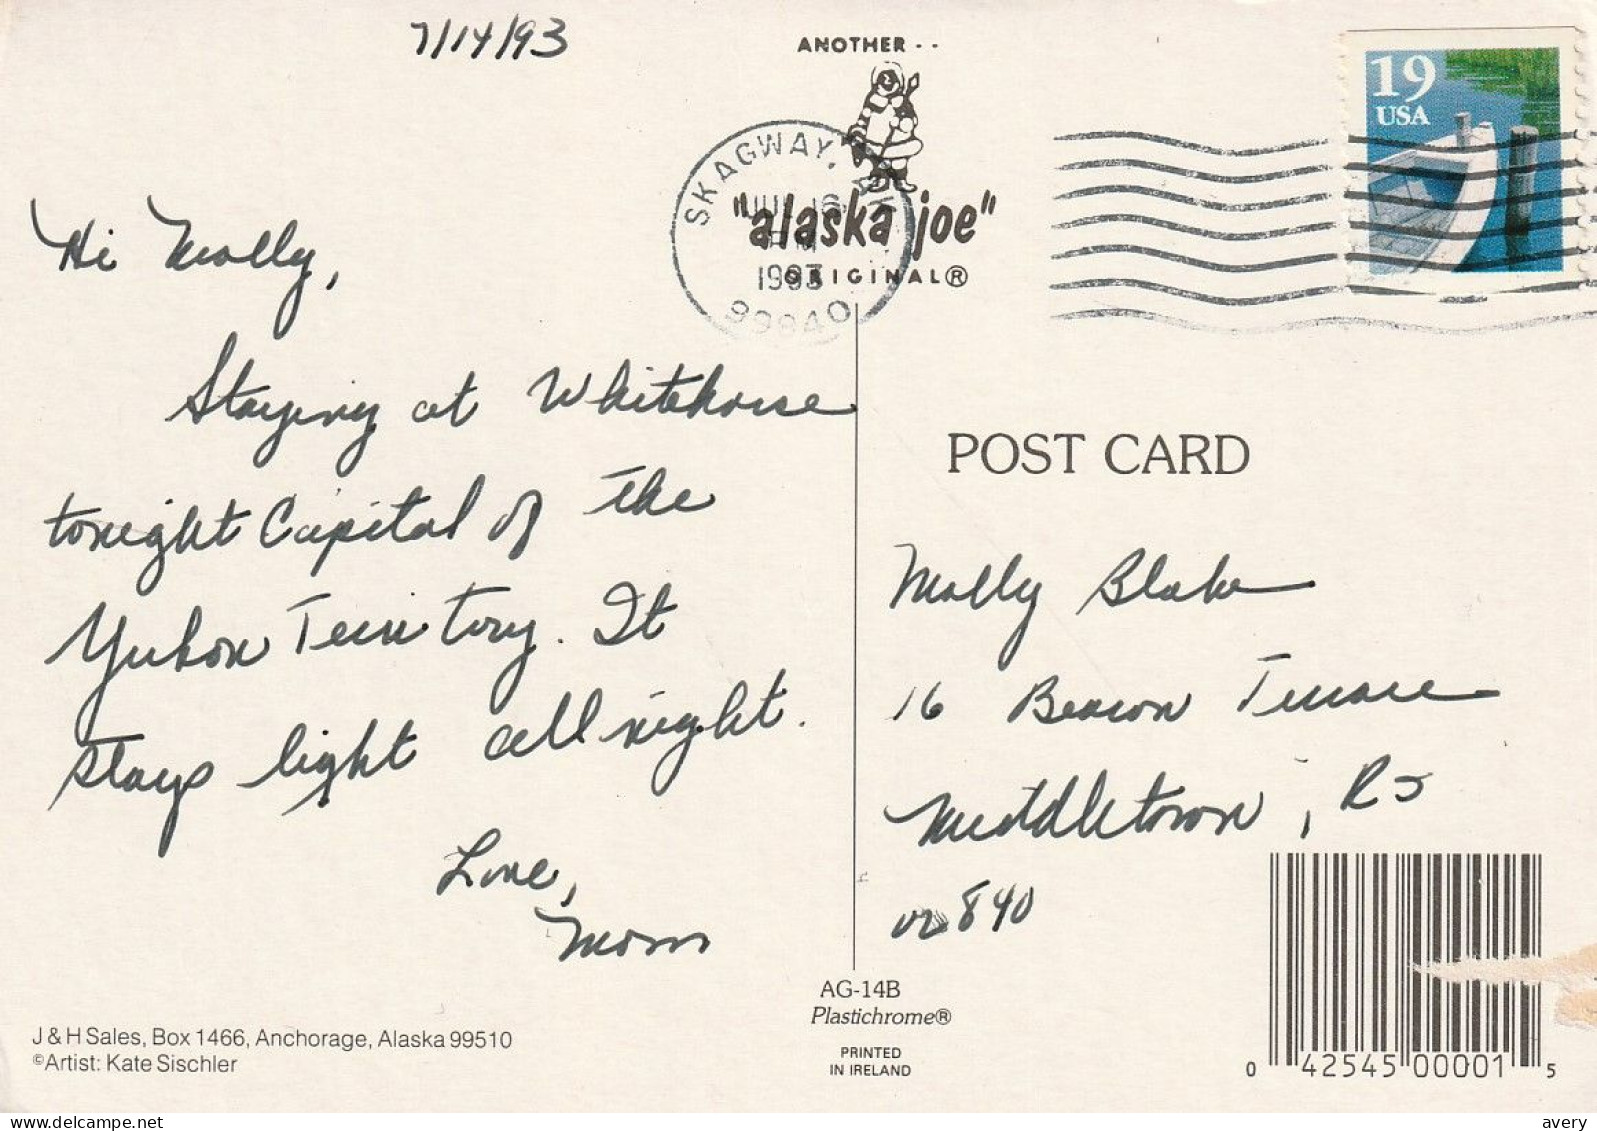 7/14/93
ANOTHER - -
"alaska joe"
ORIGINAL®
SKAGWAY, AK
JUL 16
PM
1993
99840
19
USA
Hi Molly,
Staying at Whitehorse
tonight Capital of the
Yukon Territory. It
stays light all night.
Love,
Mom
POST CARD
Molly Blake
16 Beacon Terrace
Middletown, RI
02840
AG-14B
Plastichrome®
PRINTED
IN IRELAND
J & H Sales, Box 1466, Anchorage, Alaska 99510
©Artist: Kate Sischler
0 42545 00001 5
delcampe.net
avery